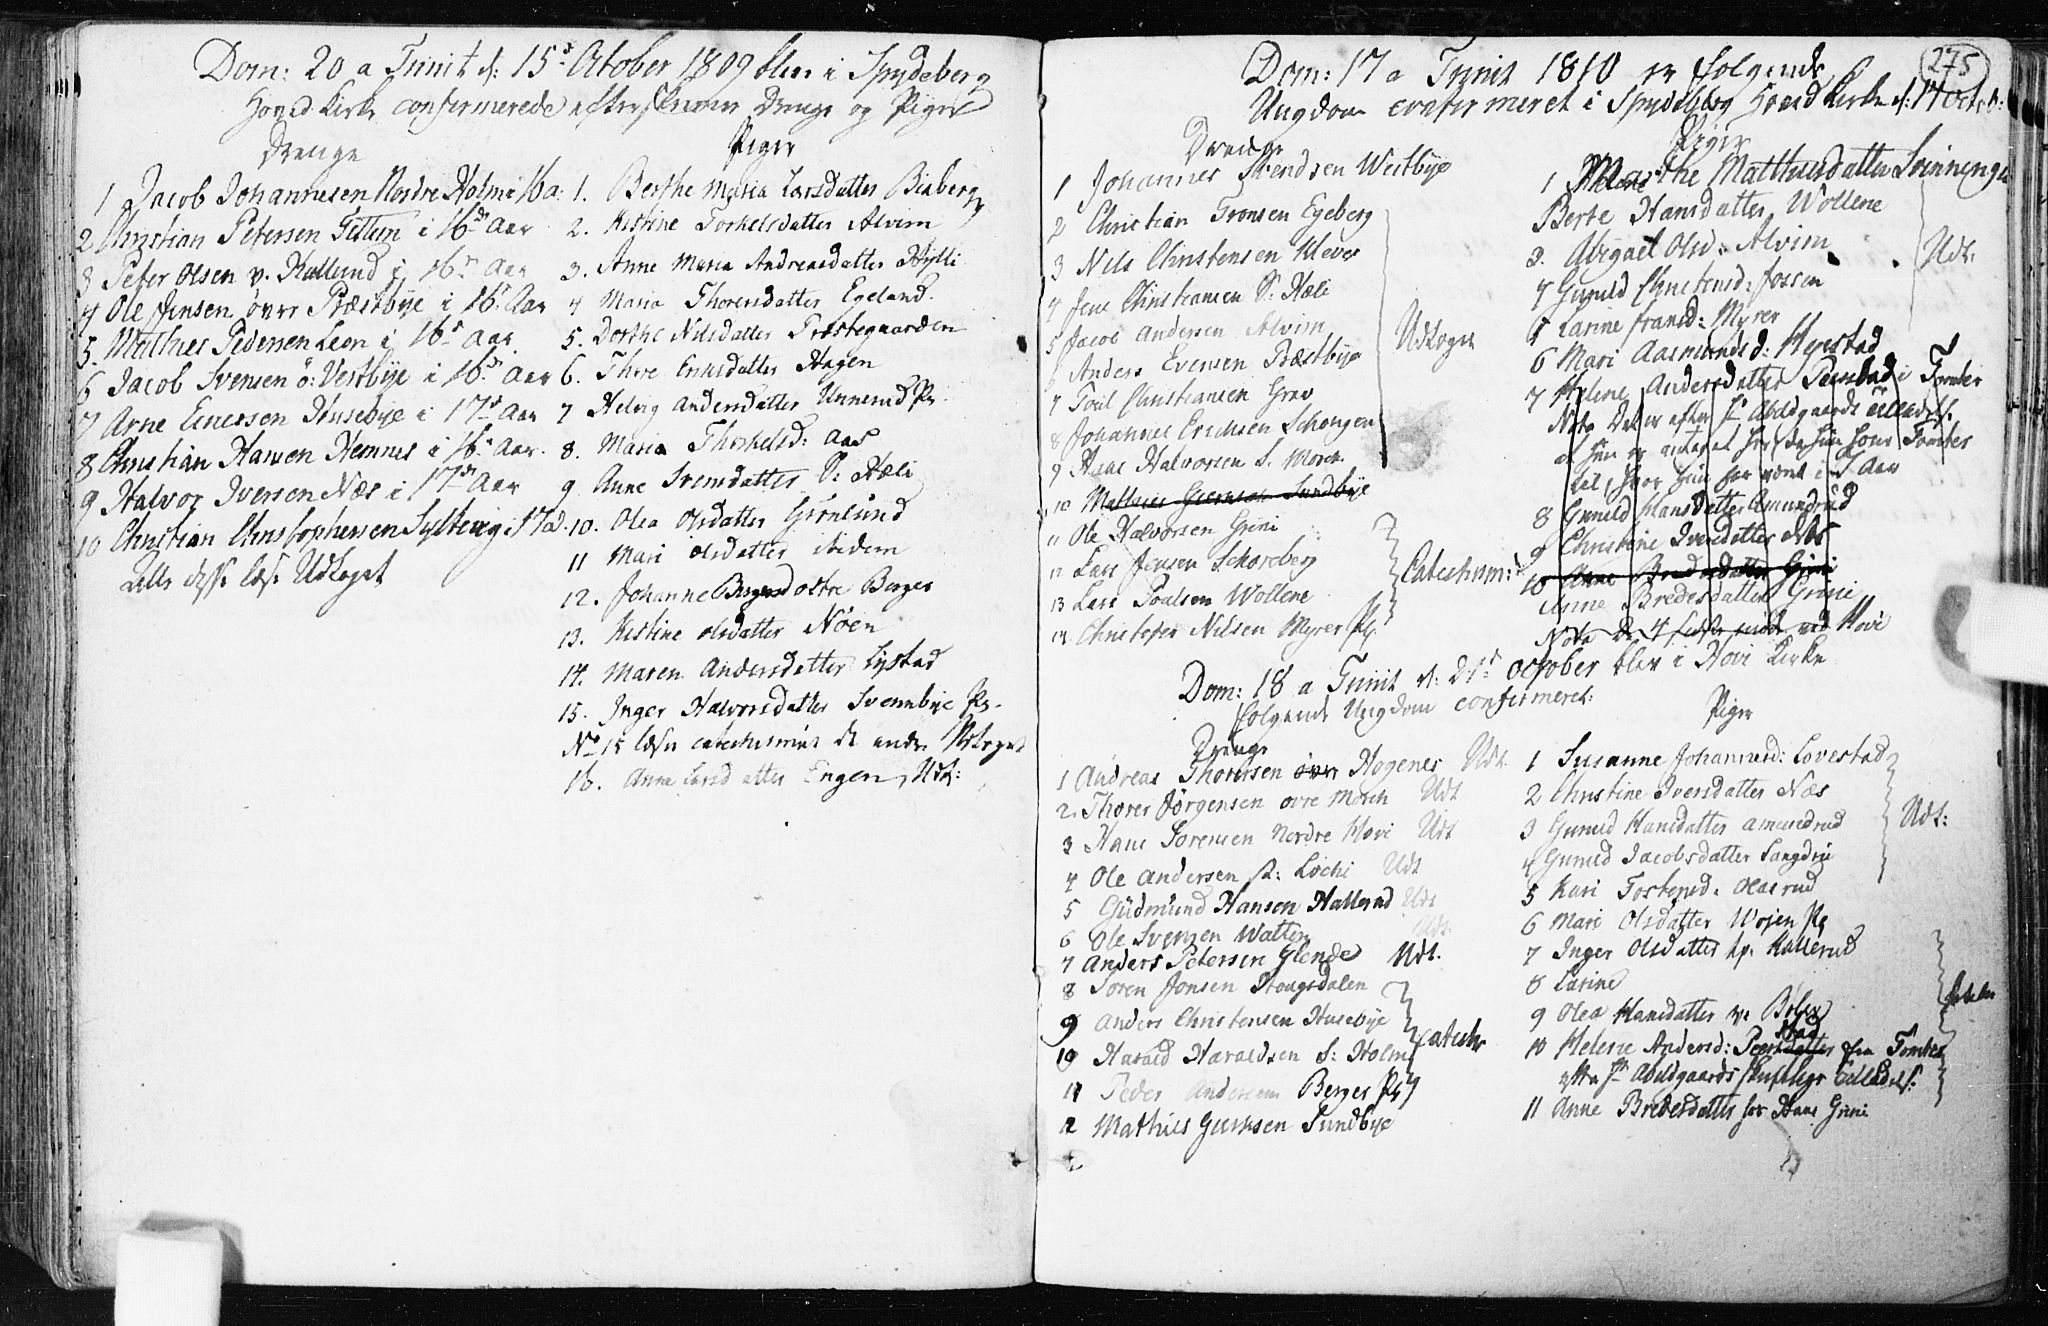 Dom: 20 a Trinit d: 15d October 1809 blev i Spydeberg
Hoved Kirke confirmerede efterskrevne Drenge og Piger
Drenge
1 Jacob Johannesen Nordre Holm i 16 a:
2 Christian Petersen Tittun i 16d Aar
3 Peter Olsen v. Kallerud i 16d Aar
4 Ole Jensen øvre Præstbye i 16. Aar
5. Mathies Pedersen Leen i 16d Aar
6 Jacob Svensen ö: Vestbye i 16d Aar
7 Arne Enersen Husebye i 17d Aar
8 Christian Hansen Hemnes i 16. Aar
9 Halvor Iversen Næs i 17d Aar
10 Christian Christophersen Sylterig i 17 a.
Alle disse læse Udtoget
Piger
1. Berthe Maria Larsdatter Biaberg
2. Kistine Torkelsdatter Alvim
3. Anne Maria Andreasdatter Hylli
4 Maria Thorersdatter Egeland
5. Dorthe Nilsdatter Præstegaarden
6. Thore Eriksdatter Hagen
7 Helvig Andersdatter Unnerud Pl.
8. Maria Thorkelsd: Aas
9 Anne Svensdatter S: Hæli
10. Olea Olsdatter Grønlund
11 Mari Olsdatter
12. Johanne Berger
13. Kistine Olsdatter Nöen
14. Maren Andersdatter Lystad
15. Inger Halvorsdatter Svennebye Pl.
No 15 læser catechismus de andre Udtoget
16. Anne Larsdatter Engen, Udt:
275
Dom: 17 a Trinit 1810 er følgende
Ungdom confirmeret i Spydeberg Hoved Kirke d: 14 Octob:
Drenge
1 Johannes Svendsen Westbye
2 Christian Tronsen Egeberg
3 Nils Christensen Kleven
4 Jens Christiansen S: Hæli
5 Jacob Andersen Alvim
6 Anders Evensen Præstbye
7 Poul Christiansen Grav
8 Johannes Erichsen Schongen
9 Hans Halvorsen S. Mörch
10 Mathies Gurmsen Sundbye
11 Ole Halvorsen Grini
12 Lars Jensen Schoreberg
13 Lars Poulsen Wollene
14 Christofer Nilsen Myrer Pl.
Udtoget
Catechism:
Piger
1 Marthe Matthisdatter Svinninge
Berte Hansdatter Wollene
3. Abigael Olsd: Alvim
4 Gunild Christensd: Fossen
5 Karine Fransd: Myrer
6 Mari Aasmundsd: Hyestad
7 Helene Andersdatter Perstad i Tomter
Nota Det er efter Hr Abildgaards tilladelse
at hun er antaget her, da hun hører Tomter
til, hvor hun har været i 1 Aar
8 Gunild Hansdatter Amundrud
9 Christine Iversdatter Næs
10 Anne Bredesdatter Grini
Anne Bredesdatter Grini
Nota De 4 sidste ved Hovi
Udt:
Dom: 18 a Trinit d: 21d October blev i Hovi Kirke
følgende Ungdom confirmeret:
Drenge
1 Andreas Thorersen øvre Hogenes Udt
2. Thorer Jørgensen øvre Mörch Udt
3 Hans Sorensen Nordre Hovi Udt
4 Ole Andersen St: Lochi Udt
5 Gudmund Hansen Hallerud Udt
6 Ole Svensen Watten Udt.
7 Anders Petersen Glende Udt.
8 Soren Jonsen Hougsdalen
9 Anders Christensen Husebye
10 Harald Haraldsen S: Holm
11 Peder Andersen Berger Pl
12 Mathies Gurmsen Sundbye
Catechi
Piger
1 Susanne Johannesd: Lovestad
2 Christine Iversdatter Næs
3 Gunild Hansdatter Amundrud
4 Gunild Jacobsdatter Langdrü
5 Kari Tostensd: Olasrud
6 Mari Olsdatter Wojen Pl
7 Inger Olsdatter v. Kallerud
8 Karine
9 Olea Hansdatter v.
10 Helene Andersd: Peerstad fra Tomter
efter Hr Abildgaards skriftlige Tilladelse
11 Anne Bredesdatter for Hans Grini
Udt: